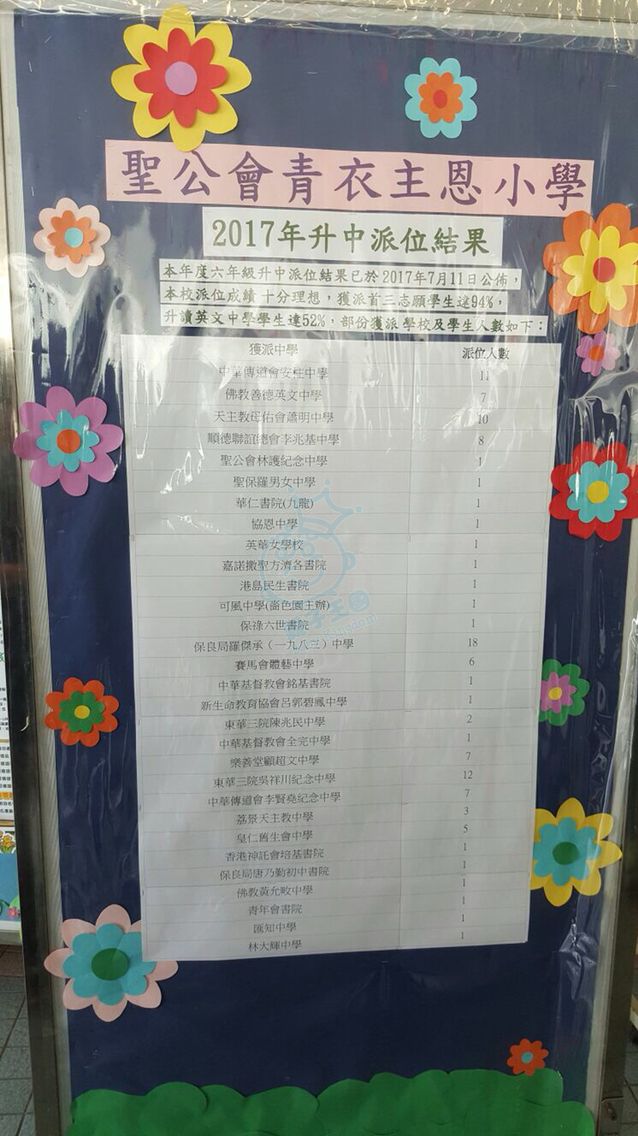 聖公會青衣主恩小學
2017年升中派位結果
本年度六年級升中派位結果已於2017年7月11日公佈，
本校派位成績十分理想，獲派首三志願學生達94%，
升讀英文中學學生達52%，部份獲派學校及學生人數如下：
獲派中學 派位人數
中華傳道會安柱中學 11
佛教善德英文中學 7
天主教母佑會蕭明中學 10
順德聯誼總會李兆基中學 8
聖公會林護紀念中學 1
聖保羅男女中學 1
華仁書院(九龍) 1
協恩中學 1
英華女學校 1
嘉諾撒聖方濟各書院 1
港島民生書院 1
可風中學(嗇色園主辦) 1
保祿六世書院 1
保良局羅傑承（一九八三）中學 18
賽馬會體藝中學 6
中華基督教會銘基書院 1
新生命教育協會呂郭碧鳳中學 1
東華三院陳兆民中學 2
中華基督教會全完中學 1
樂善堂顧超文中學 7
東華三院吳祥川紀念中學 12
中華傳道會李賢堯紀念中學 7
荔景天主教中學 3
皇仁舊生會中學 5
香港神託會培基書院 1
保良局唐乃勤初中書院 1
佛教黃允畋中學 1
青年會書院 1
匯知中學 1
林大輝中學 1